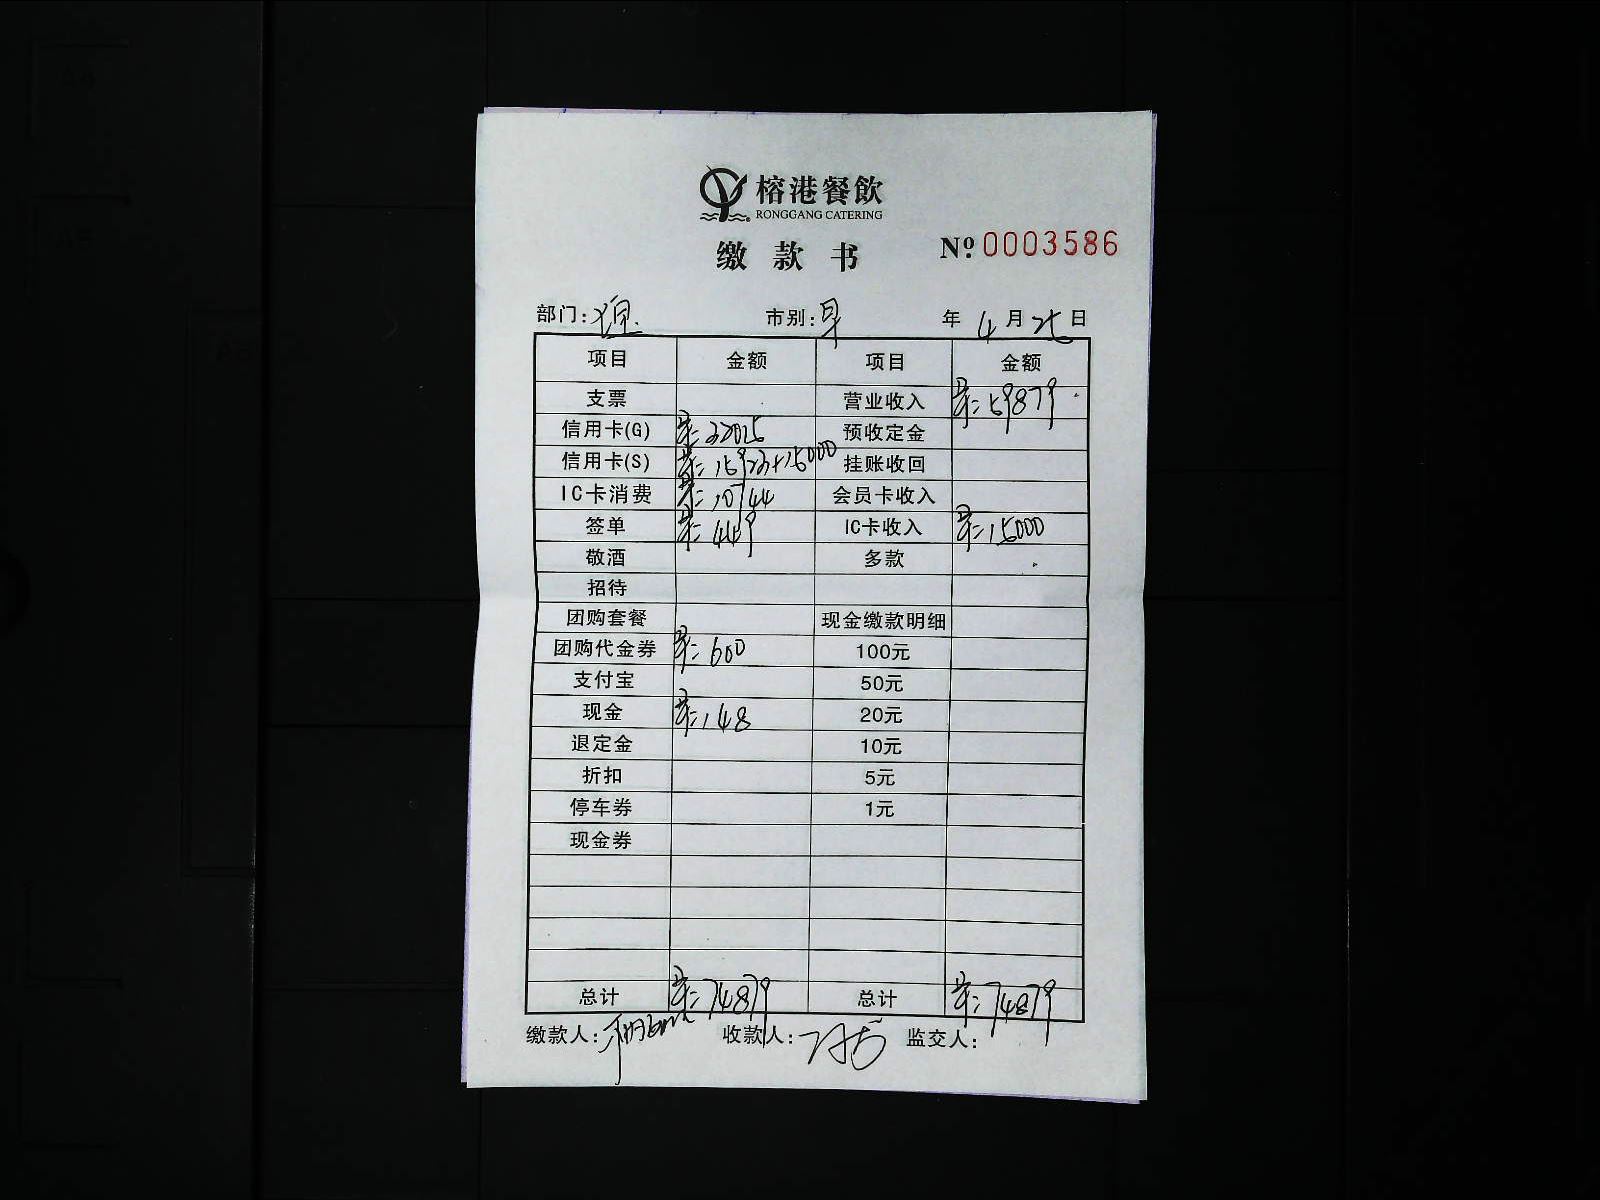 榕港餐飲
RONGGANG CATERING
缴款书 № 0003586
部门: 市别: 早 年 4 月 25 日
项目 金额 项目 金额
支票 营业收入 早: 59879
信用卡(G) 早: 32015 预收定金
信用卡(S) 早: 15923+15000 挂账收回
IC卡消费 早: 10744 会员卡收入
签单 早: 449 IC卡收入 早: 15000
敬酒 多款
招待
团购套餐 现金缴款明细
团购代金券 早: 600 100元
支付宝 50元
现金 早: 148 20元
退定金 10元
折扣 5元
停车券 1元
现金券
总计 早: 74879 总计 早: 74879
缴款人: 收款人: 监交人: